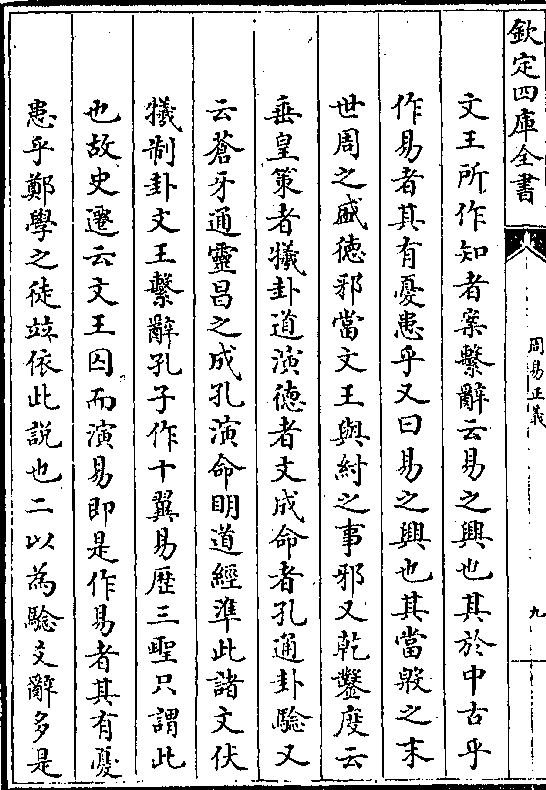 欽定四庫全書
周易正義
九
文王所作知者案繫辭云易之興也其於中古乎
作易者其有憂患乎又曰易之興也其當殷之末
世周之盛德邪當文王與紂之事邪又乾鑿度云
垂皇策者犧卦道演德者文成命者孔通卦驗又
云蒼牙通靈昌之成孔演命明道經準此諸文伏
犧制卦文王繫辭孔子作十翼易歷三聖只謂此
也故史遷云文王囚而演易即是作易者其有憂
患乎鄭學之徒竝依此說也二以為驗爻辭多是